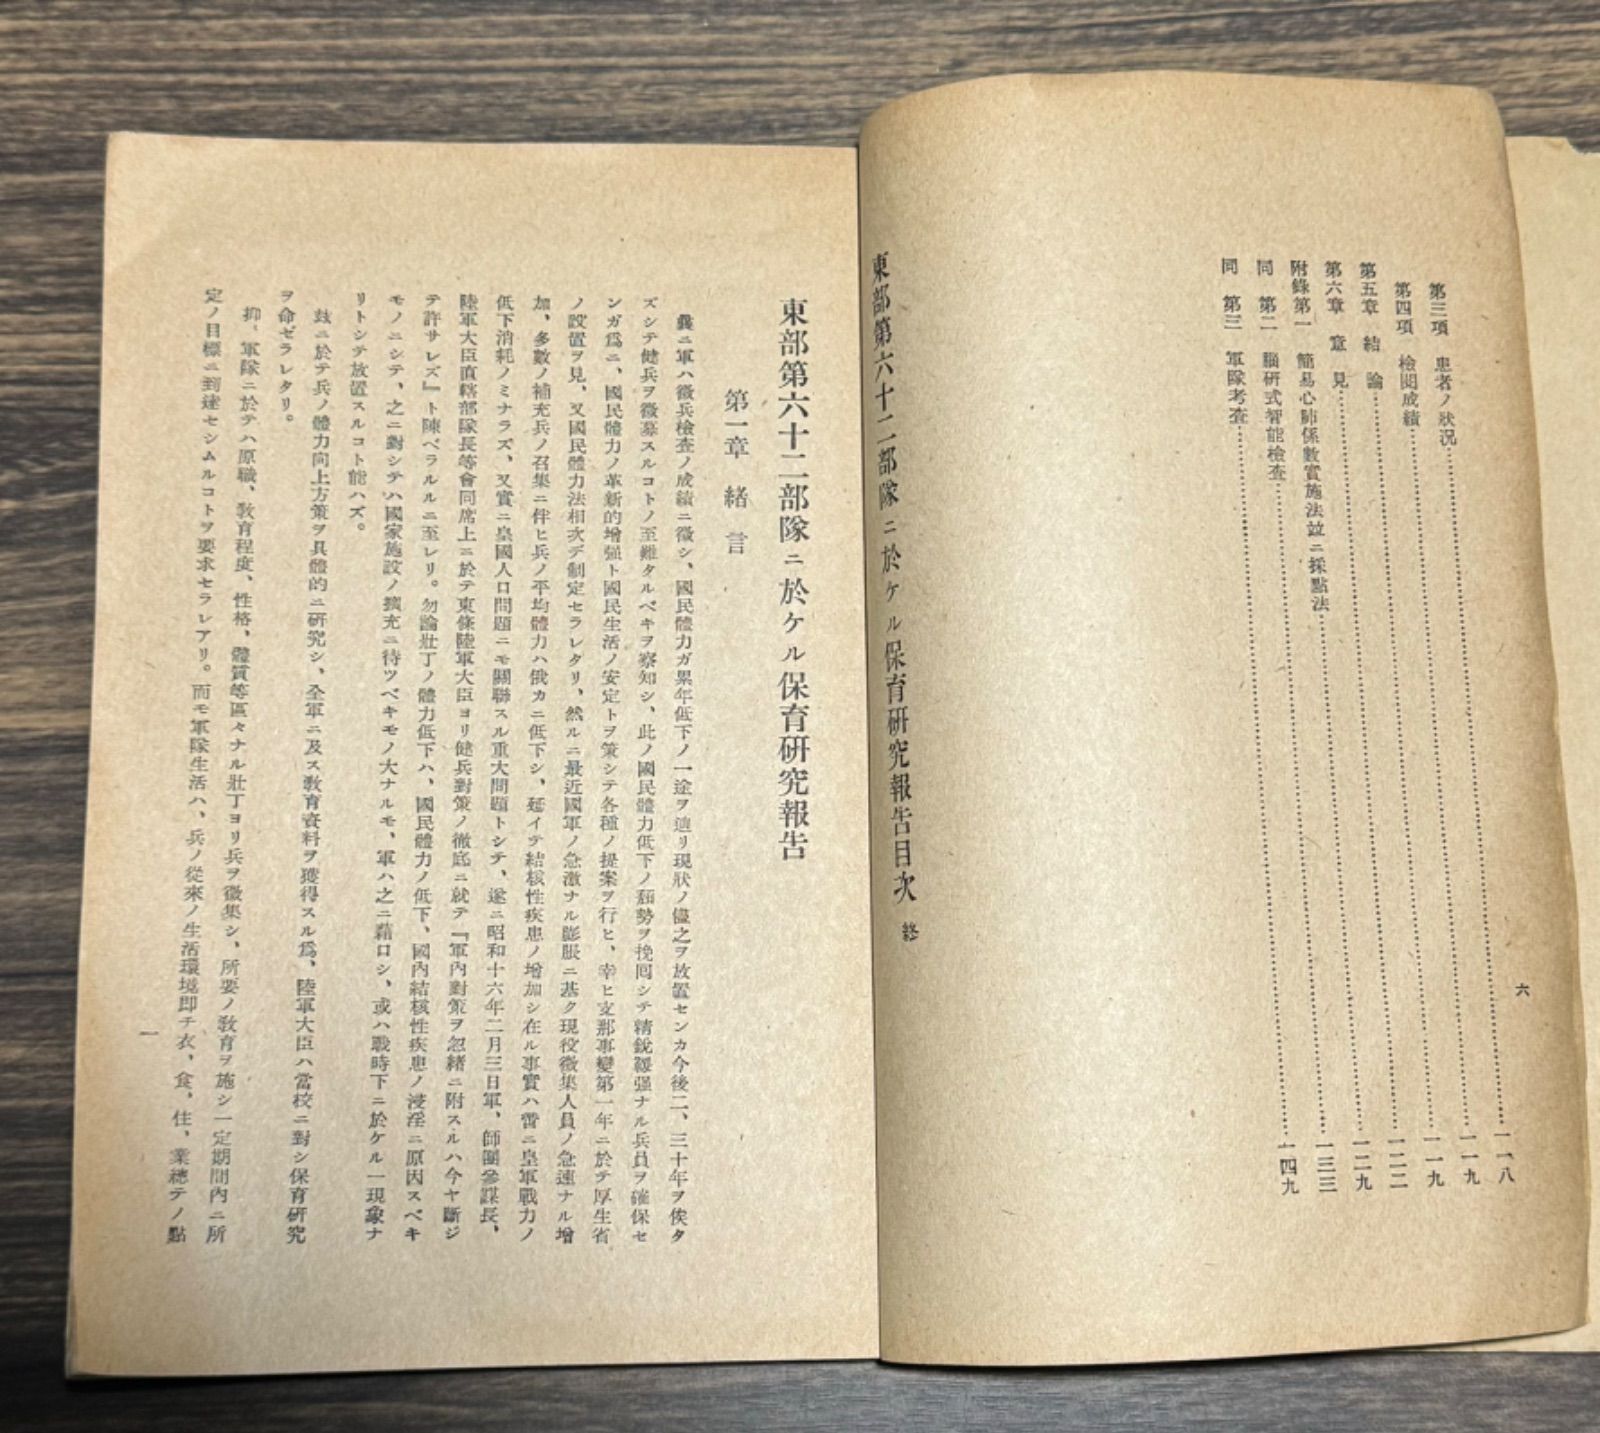 六
第三項 患者ノ狀況……一一八
第四項 檢閱成績……一一九
第五章 結論……一一九
第六章 意見……一二二
附錄第一 簡易心肺係數實施法竝ニ採點法……一二九
同 第二 腦研式智能檢査……一三三
同 第三 軍隊考査……一四九
東部第六十二部隊ニ於ケル保育研究報告目次 終
東部第六十二部隊ニ於ケル保育研究報告
第一章 緖言
曩ニ軍ハ徵兵檢査ノ成績ニ徵シ、國民體力ガ累年低下ノ一途ヲ辿リ現狀ノ儘之ヲ放置センカ今後二、三十年ヲ俟タ
ズシテ健兵ヲ徵募スルコトノ至難タルベキヲ察知シ、此ノ國民體力低下ノ頽勢ヲ挽囘シテ精銳强ナル兵員ヲ確保セ
ンガ爲ニ、國民體力ノ革新的增强ト國民生活ノ安定トヲ策シテ各種ノ提案ヲ行ヒ、幸ヒ支那事變第一年ニ於テ厚生省
ノ設置ヲ見、又國民體力法相次デ制定セラレタリ、然ルニ最近國軍ノ急激ナル膨脹ニ基ク現役徵集人員ノ急速ナル增
加、多數ノ補充兵ノ召集ニ伴ヒ兵ノ平均體力ハ俄カニ低下シ、延イテ結核性疾患ノ增加シ在ル事實ハ啻ニ皇軍戰力ノ
低下消耗ノミナラズ、又實ニ皇國人口問題ニモ關聯スル重大問題トシテ、遂ニ昭和十六年二月三日軍、師團參謀長、
陸軍大臣直轄部隊長等會同席上ニ於テ東條陸軍大臣ヨリ健兵對策ノ徹底ニ就テ『軍內對策ヲ忽緖ニ附スルハ今ヤ斷ジ
テ許サレズ』ト陳ベラルルニ至レリ。勿論壯丁ノ體力低下ハ、國民體力ノ低下、國內結核性疾患ノ浸淫ニ原因スベキ
モノニシテ、之ニ對シテハ國家施設ノ擴充ニ待ツベキモノ大ナルモ、軍ハ之ニ藉口シ、或ハ戰時下ニ於ケル一現象ナ
リトシテ放置スルコト能ハズ。
玆ニ於テ兵ノ體力向上方策ヲ具體的ニ硏究シ、全軍ニ及ス敎育資料ヲ獲得スル爲、陸軍大臣ハ當校ニ對シ保育硏究
ヲ命ゼラレタリ。
抑〻軍隊ニ於テハ原職、敎育程度、性格、體質等區々ナル壯丁ヨリ兵ヲ徵集シ、所要ノ敎育ヲ施シ一定期間內ニ所
定ノ目標ニ到達セシムルコトヲ要求セラレアリ。而モ軍隊生活ハ、兵ノ從來ノ生活環境卽チ衣、食、住、業總テノ點
一